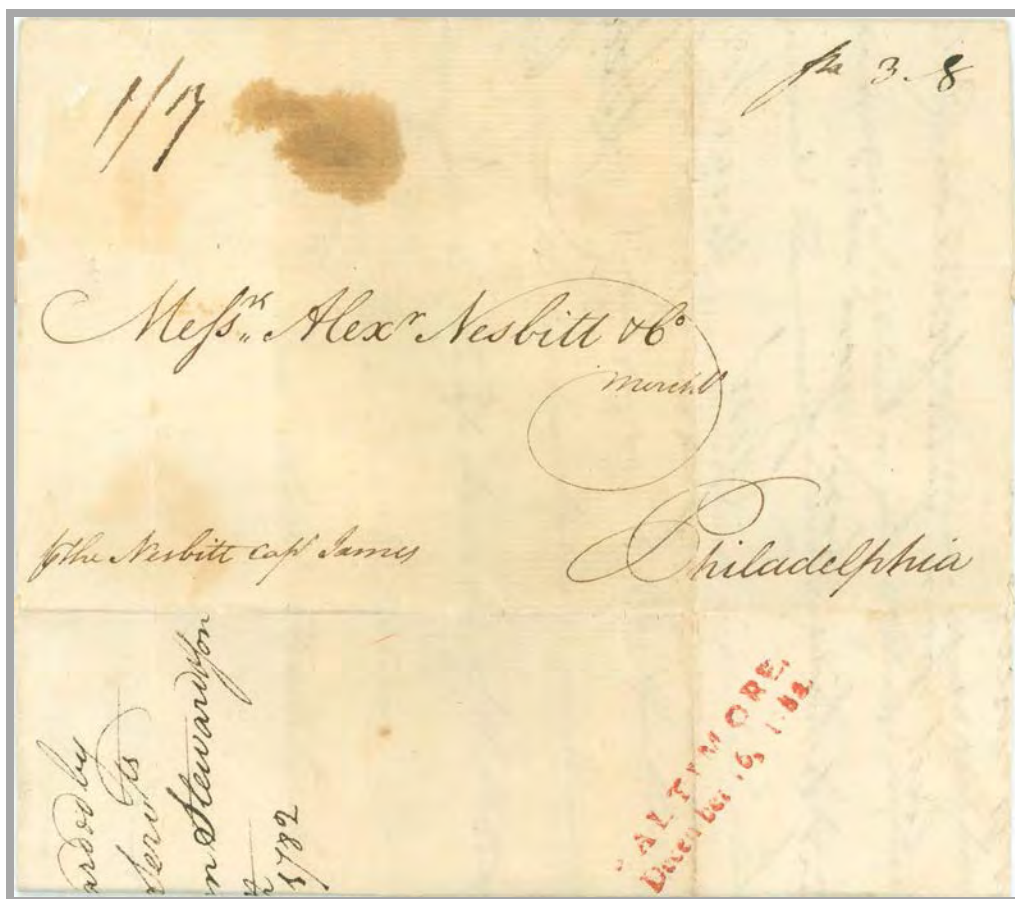 1/17
3.8
Messrs. Alexr Nesbitt & Co
Merchts
Philadelphia
pr the Nesbitt Capt James
arded by
Servts
m Stewardson
1782
BALTIMORE,
December 16, 1782.